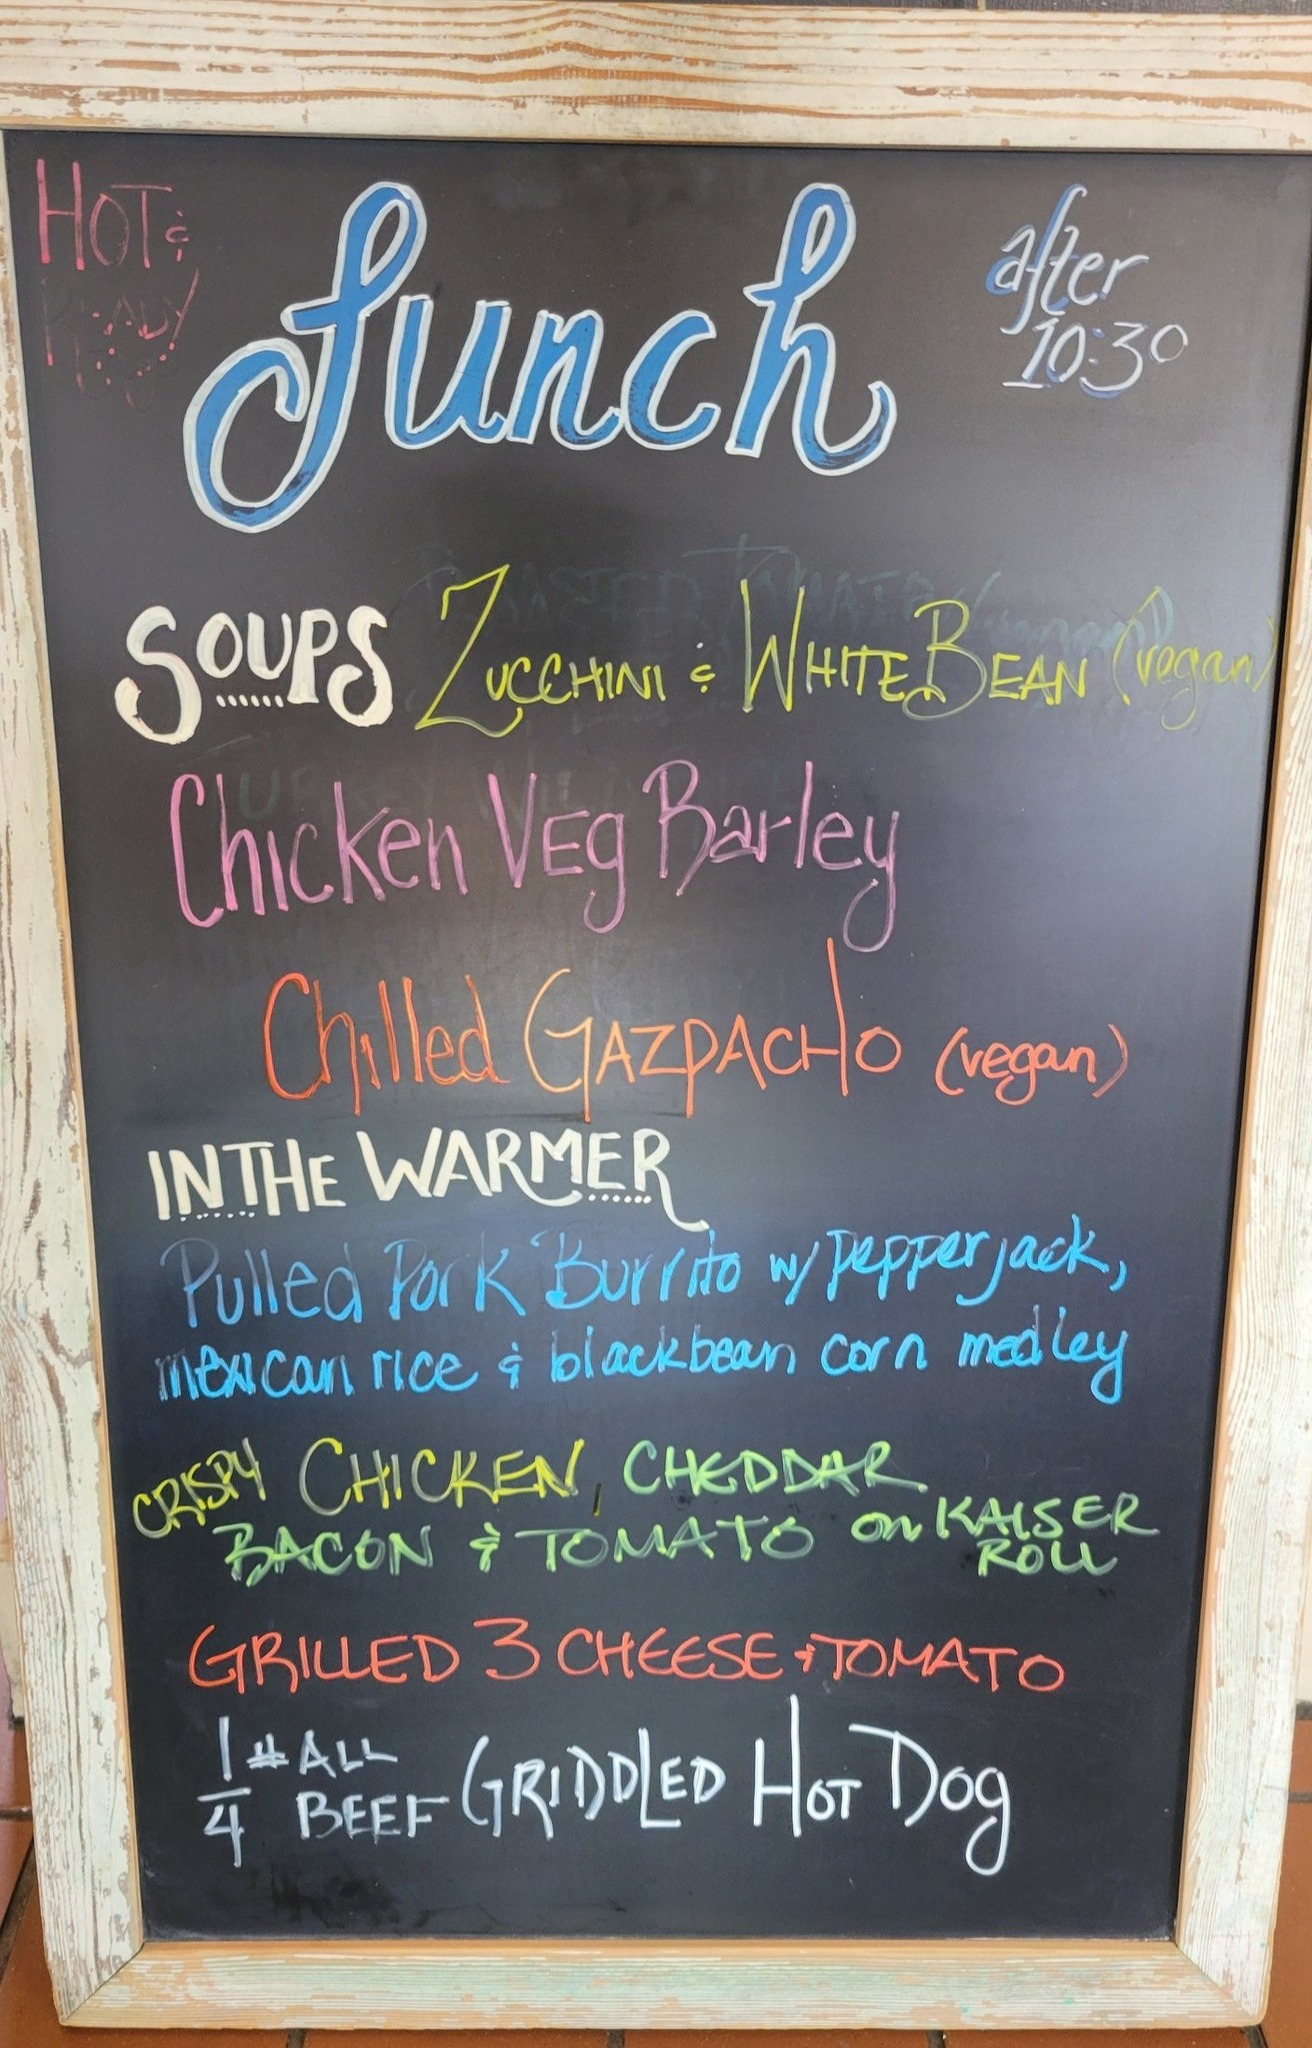 HOT &
READY
Lunch
after
10:30
SOUPS ZUCCHINI & WHITE BEAN (vegan)
Chicken VEg Barley
Chilled GAZPACHO (vegan)
IN THE WARMER
Pulled Pork Burrito w/ pepperjack,
mexican rice & blackbean corn medley
CRISPY CHICKEN, CHEDDAR
BACON & TOMATO on KAISER
ROLL
GRILLED 3 CHEESE + TOMATO
1/4 # ALL
BEEF GRIDDLED HOT DOg